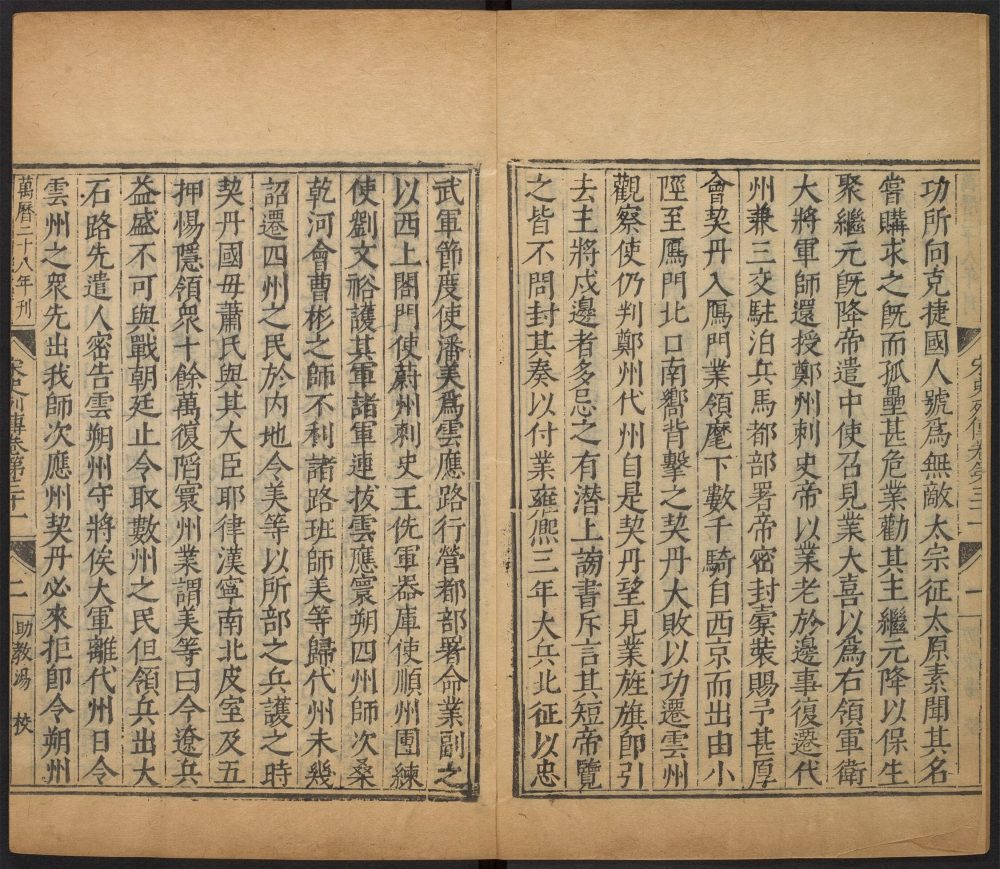 功所向克捷國人號爲無敵太宗征太原素聞其名
嘗購求之旣而孤壘甚危業勸其主繼元降以保生
聚繼元旣降帝遣中使召見業大喜以爲右領軍衛
大將軍師還授鄭州刺史帝以業老於邊事復遷代
州兼三交駐泊兵馬都部署帝密封橐裝賜予甚厚
會契丹入鴈門業領麾下數千騎自西京而出由小
陘至鴈門北口南嚮背擊之契丹大敗以功遷雲州
觀察使仍判鄭州代州自是契丹望見業旌旗卽引
去主將戍邊者多忌之有潛上謗書斥言其短帝覽
之皆不問封其奏以付業雍熈三年大兵北征以忠
武軍節度使潘美爲雲應路行營都部署命業副之
以西上閤門使蔚州刺史王侁軍器庫使順州團練
使劉文裕護其軍諸軍連拔雲應寰朔四州師次桑
乾河會曹彬之師不利諸路班師美等歸代州未幾
詔遷四州之民於内地令美等以所部之兵護之時
契丹國毋蕭氏與其大臣耶律漢寧南北皮室及五
押惕隱領衆十餘萬復陷寰州業謂美等曰今遼兵
益盛不可與戰朝廷止令取數州之民但領兵出大
石路先遣人密告雲朔州守將俟大軍離代州日令
雲州之衆先出我師次應州契丹必來拒卽令朔州
萬曆二十八年刊
宋史列傳卷第三十一
二
助教馮 校